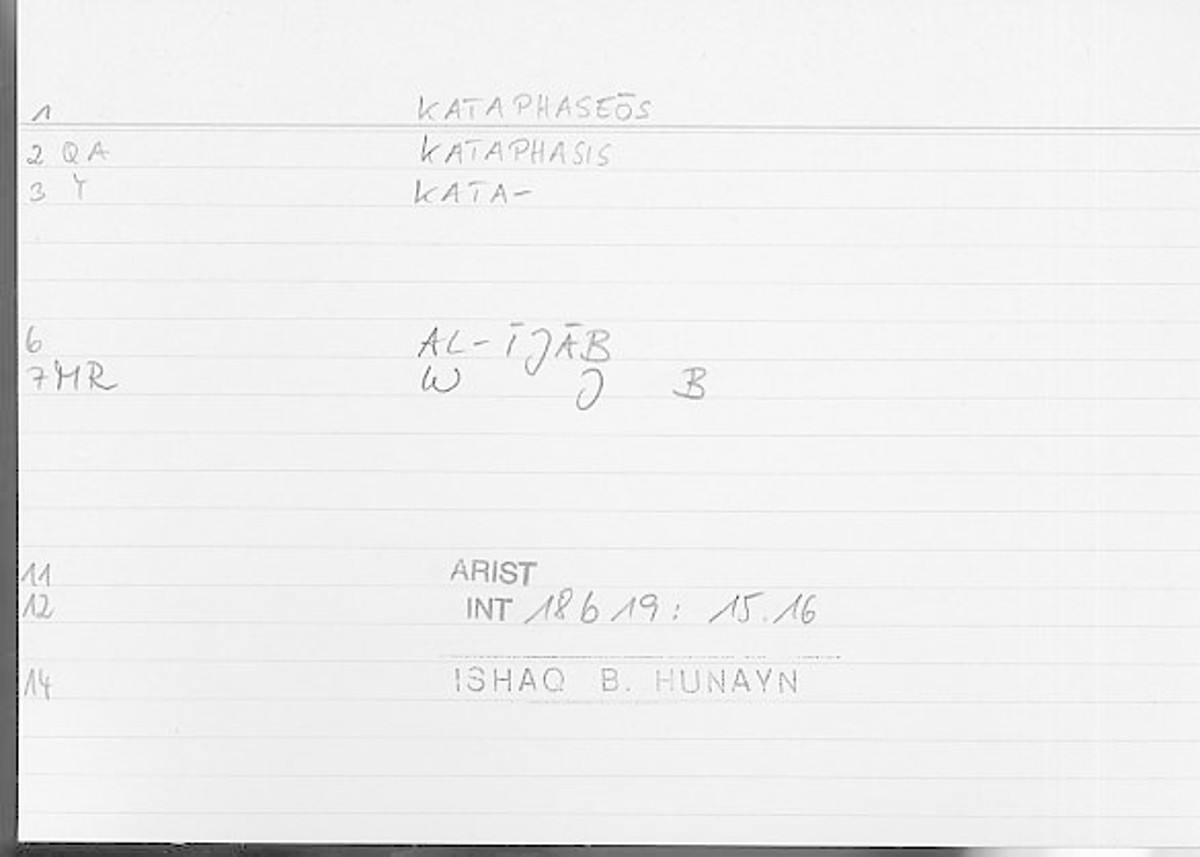 1 KATAPHASEŌS
2 QA KATAPHASIS
3 Y KATA-
6 AL-ĪJĀB
7 MR W J B
11 ARIST
12 INT 18b19: 15.16
14 ISHAQ B. HUNAYN